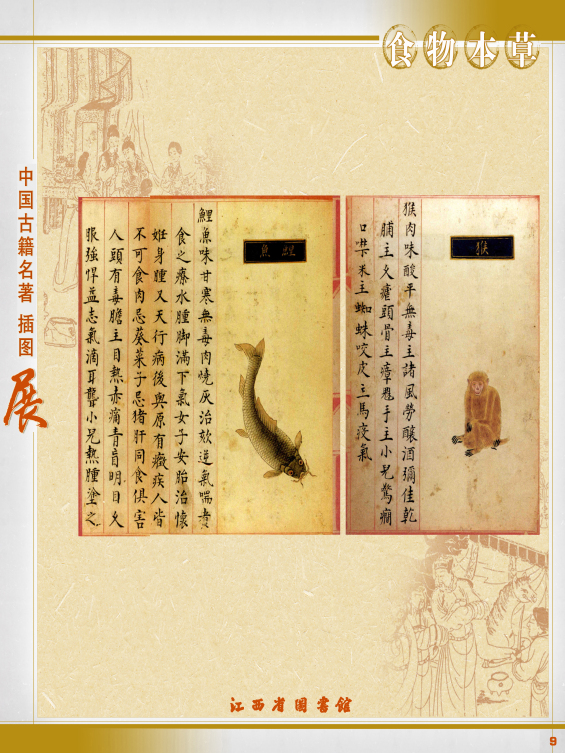 食物本草
中国古籍名著插图展
猴
猴肉味酸平無毒主諸風勞釀酒彌佳乾
脯主久瘧頭骨主瘴瘧手主小兒驚癇
口噤 主蜘蛛咬皮主馬疫氣
鯉魚
鯉魚味甘寒無毒肉燒灰治欬逆氣喘煮
食之療水腫脚滿下氣女子安胎治懷
姙身腫又天行病後與原有癥疾人皆
不可食肉忌葵菜子忌猪肝同食俱害
人頭有毒膽主目熱赤痛青盲明目久
服強悍益志氣滴耳聾小兒熱腫塗之
江西省图書館
9